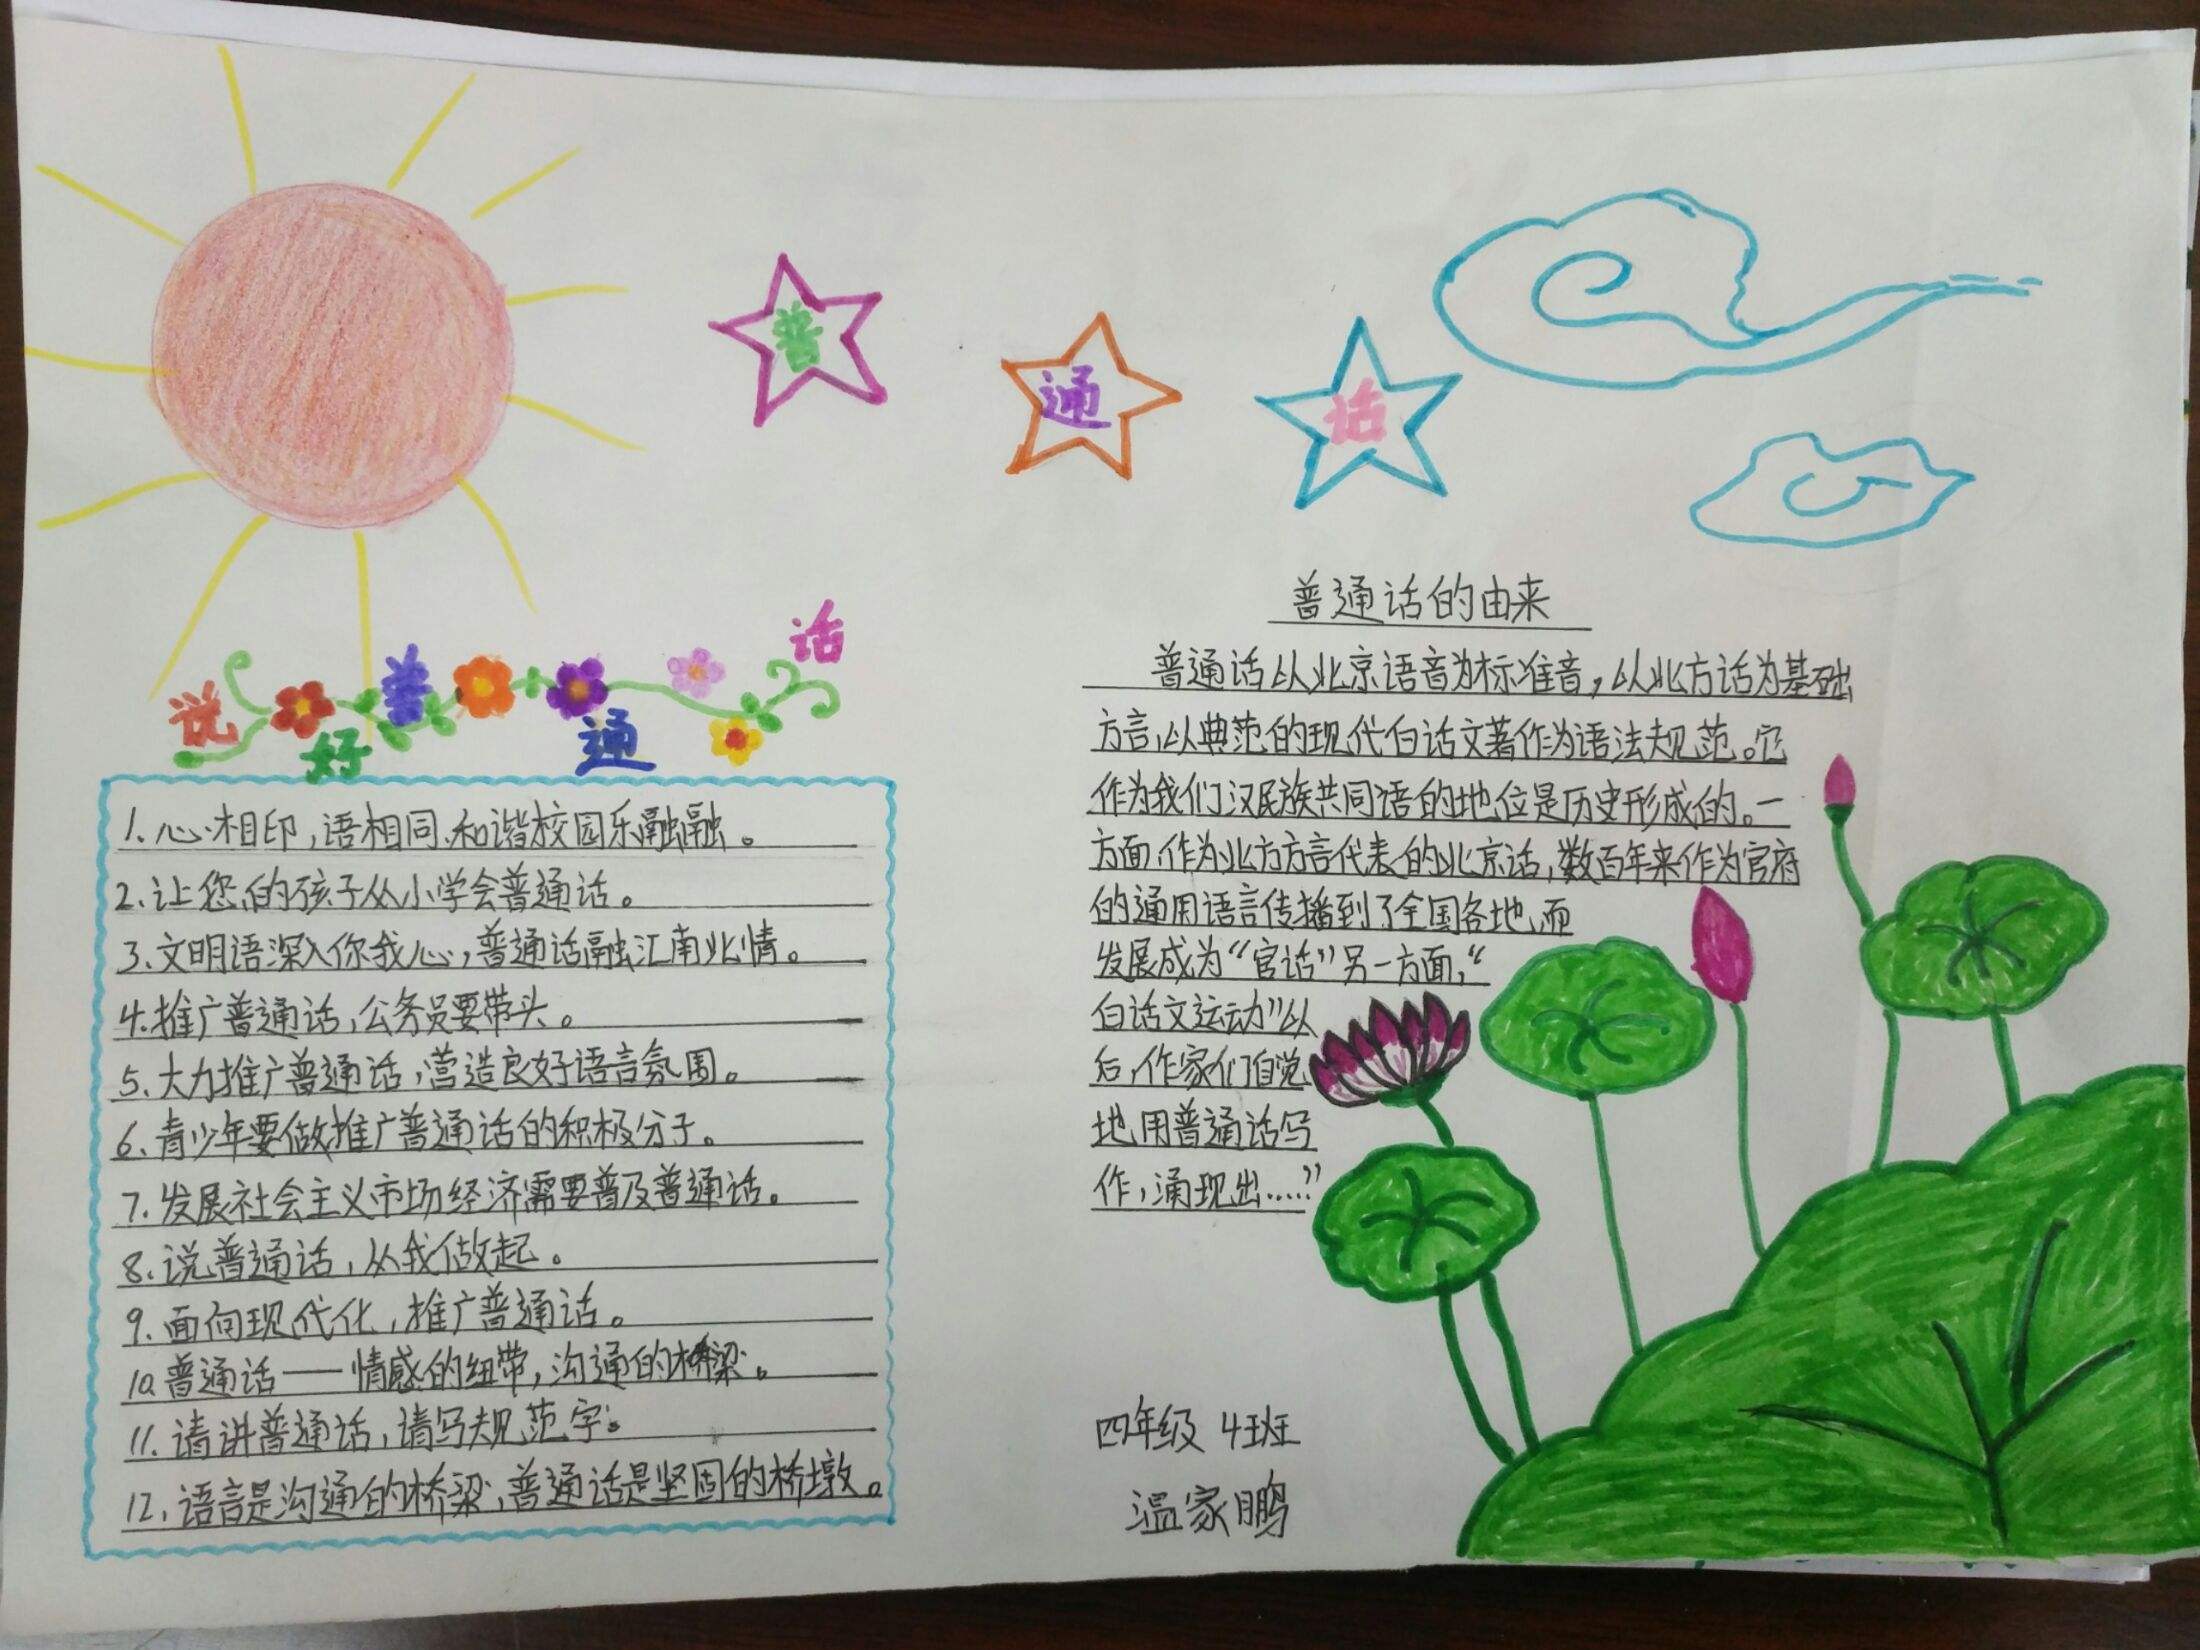 普通话
说好普通话
1.心相印,语相同.和谐校园乐融融。
2.让您的孩子从小学会普通话。
3.文明语深入你我心,普通话融汇南北情。
4.推广普通话,公务员要带头。
5.大力推广普通话,营造良好语言氛围。
6.青少年要做推广普通话的积极分子。
7.发展社会主义市场经济需要普及普通话。
8.说普通话,从我做起。
9.面向现代化,推广普通话。
10.普通话——情感的纽带,沟通的桥梁。
11.请讲普通话,请写规范字。
12.语言是沟通的桥梁,普通话是坚固的桥墩。
普通话的由来
普通话以北京语音为标准音,以北方话为基础
方言,以典范的现代白话文著作为语法规范。它
作为我们汉民族共同语的地位是历史形成的。一
方面,作为北方方言代表的北京话,数百年来作为官府
的通用语言传播到了全国各地,而
发展成为“官话”另一方面,“
白话文运动”以
后,作家们自觉
地用普通话写
作,涌现出……”
四年级 4班
温家鹏